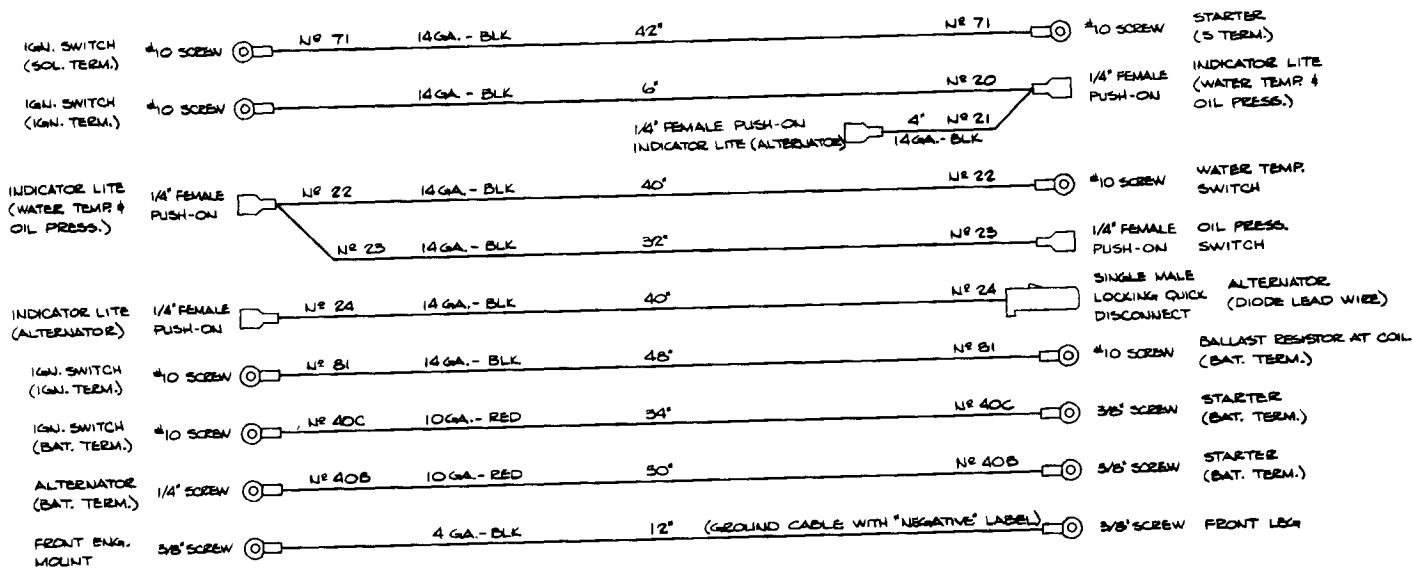 IGN. SWITCH
(SOL. TERM.)
#10 SCREW
Nº 71
14GA.-BLK
42"
Nº 71
#10 SCREW
STARTER
(S TERM.)
IGN. SWITCH
(IGN. TERM.)
#10 SCREW
14GA.-BLK
6"
Nº 20
1/4" FEMALE
PUSH-ON
INDICATOR LITE
(WATER TEMP. &
OIL PRESS.)
1/4" FEMALE PUSH-ON
INDICATOR LITE (ALTERNATOR)
4" Nº 21
14GA.-BLK
INDICATOR LITE
(WATER TEMP. &
OIL PRESS.)
1/4" FEMALE
PUSH-ON
Nº 22
14GA.-BLK
40"
Nº 22
#10 SCREW
WATER TEMP.
SWITCH
Nº 23
14GA.-BLK
32"
Nº 23
1/4" FEMALE
PUSH-ON
OIL PRESS.
SWITCH
INDICATOR LITE
(ALTERNATOR)
1/4" FEMALE
PUSH-ON
Nº 24
14GA.-BLK
40"
Nº 24
SINGLE MALE
LOCKING QUICK
DISCONNECT
ALTERNATOR
(DIODE LEAD WIRE)
IGN. SWITCH
(IGN. TERM.)
#10 SCREW
Nº 81
14GA.-BLK
48"
Nº 81
#10 SCREW
BALLAST RESISTOR AT COIL
(BAT. TERM.)
IGN. SWITCH
(BAT. TERM.)
#10 SCREW
Nº 40C
10GA.-RED
34"
Nº 40C
3/8" SCREW
STARTER
(BAT. TERM.)
ALTERNATOR
(BAT. TERM.)
1/4" SCREW
Nº 40B
10GA.-RED
50"
Nº 40B
3/8" SCREW
STARTER
(BAT. TERM.)
FRONT ENG.
MOUNT
3/8" SCREW
4 GA.-BLK
12"
(GROUND CABLE WITH "NEGATIVE" LABEL)
3/8" SCREW
FRONT LEG